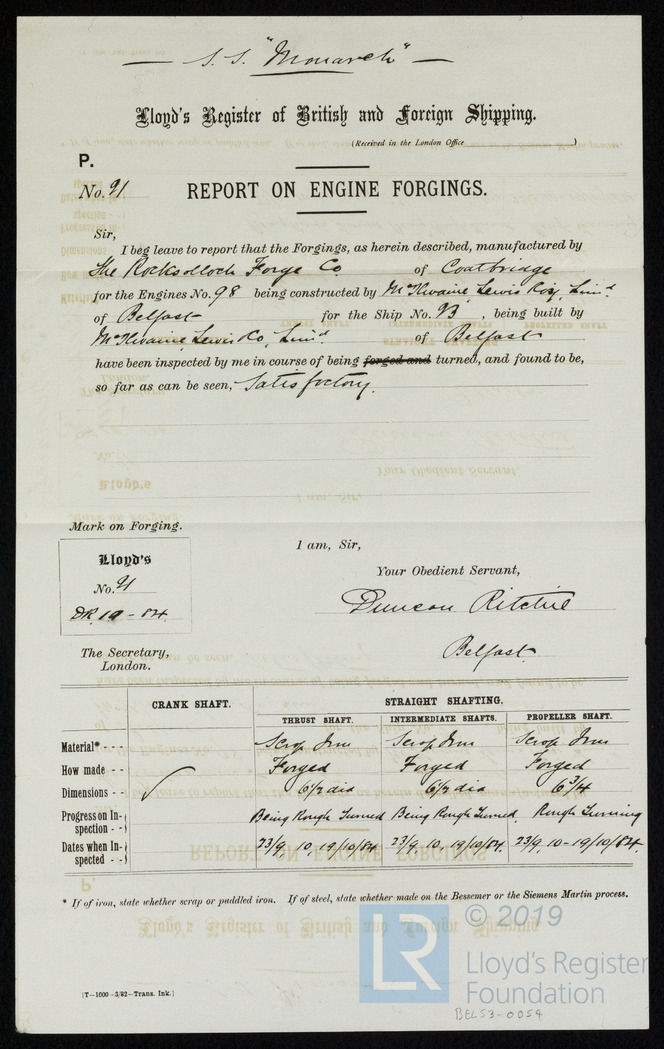 — S.S. "Monarch" —
Lloyd's Register of British and Foreign Shipping.
(Received in the London Office )
P.
No. 21
REPORT ON ENGINE FORGINGS.
Sir,
I beg leave to report that the Forgings, as herein described, manufactured by
The Rocksolloch Forge Co of Coatbridge
for the Engines No. 98 being constructed by McIlwaine, Lewis & Coy, Limd
of Belfast for the Ship No. 23, being built by
McIlwaine, Lewis & Co, Limd of Belfast
have been inspected by me in course of being forged and turned, and found to be,
so far as can be seen, Satisfactory.
Mark on Forging.
Lloyd's
No. 21
DR. 19 - 84
I am, Sir,
Your Obedient Servant,
Duncan Ritchie
Belfast
The Secretary,
London.
CRANK SHAFT. STRAIGHT SHAFTING.
THRUST SHAFT. INTERMEDIATE SHAFTS. PROPELLER SHAFT.
Material* - - - Scrap Iron Scrap Iron Scrap Iron
How made - - Forged Forged Forged
Dimensions - - ✓ 6 1/2 dia 6 1/2 dia 6 3/4
Progress on Inspection - - Being Rough Turned Being Rough Turned. Rough Turning
Dates when Inspected - - 23/9, 10, 19/10/84 23/9, 10, 19/10/84. 23/9, 10 - 19/10/84.
* If of iron, state whether scrap or puddled iron. If of steel, state whether made on the Bessemer or the Siemens Martin process.
© 2019
LR
Lloyd's Register
Foundation
[T—1000—3/82—Trans. Ink.]
BEL53-0054